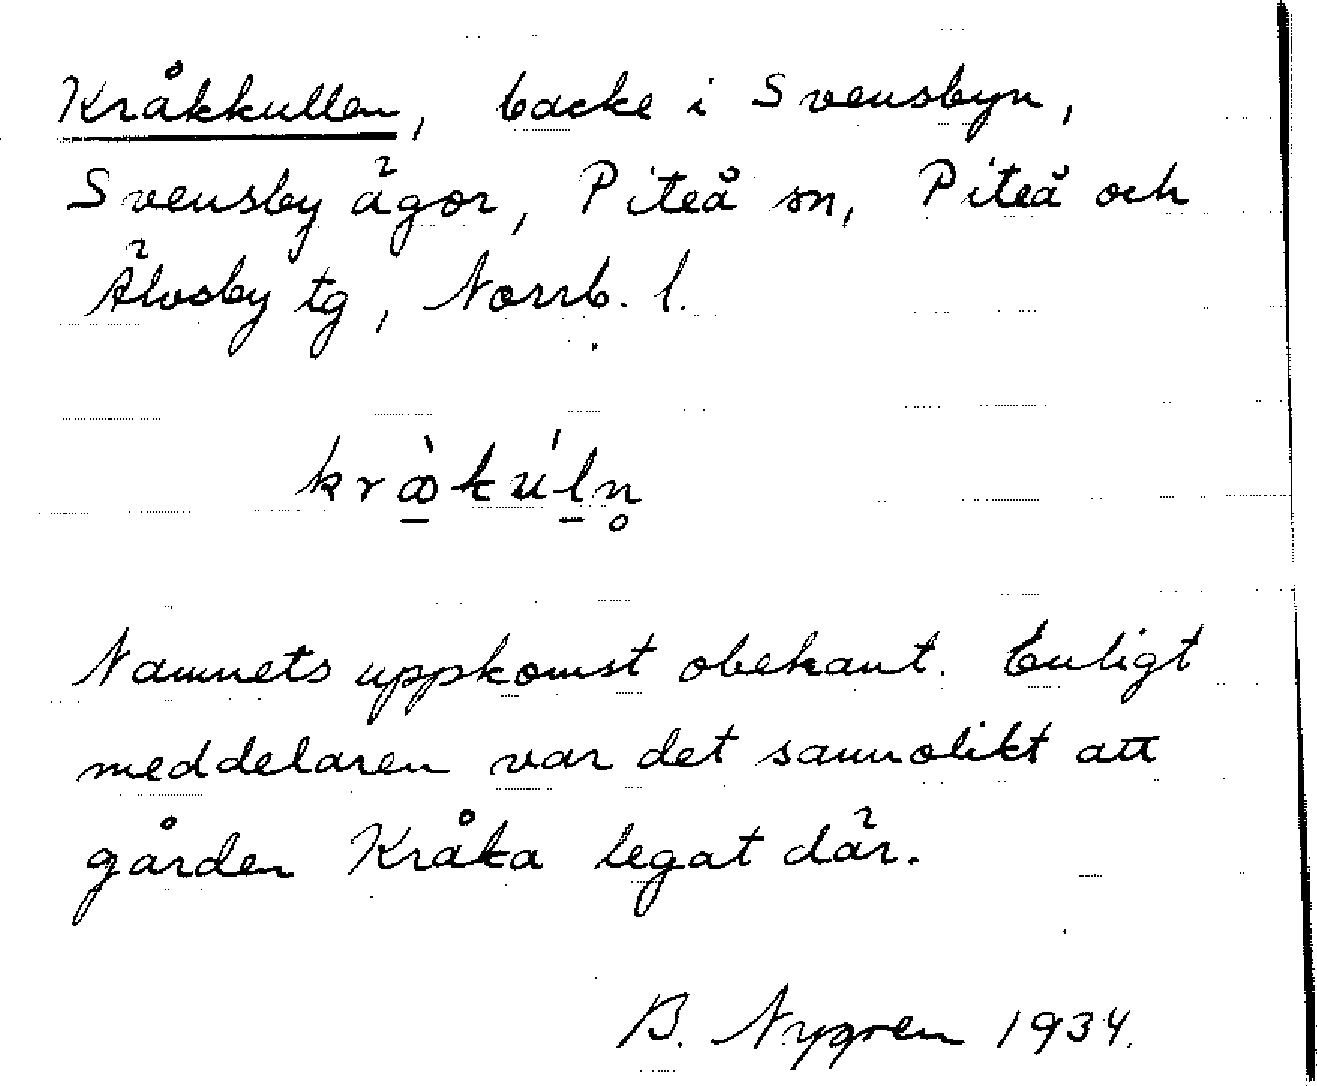 Kråkkullen, backe i Svensbyn,
Svensby ägor, Piteå sn, Piteå och
Älvsby tg, Norrb. l.
kræ̀kúln̥
Namnets uppkomst obekant. Enligt
meddelaren var det sannolikt att
gården Kråka legat där.
B. Nygren 1934.